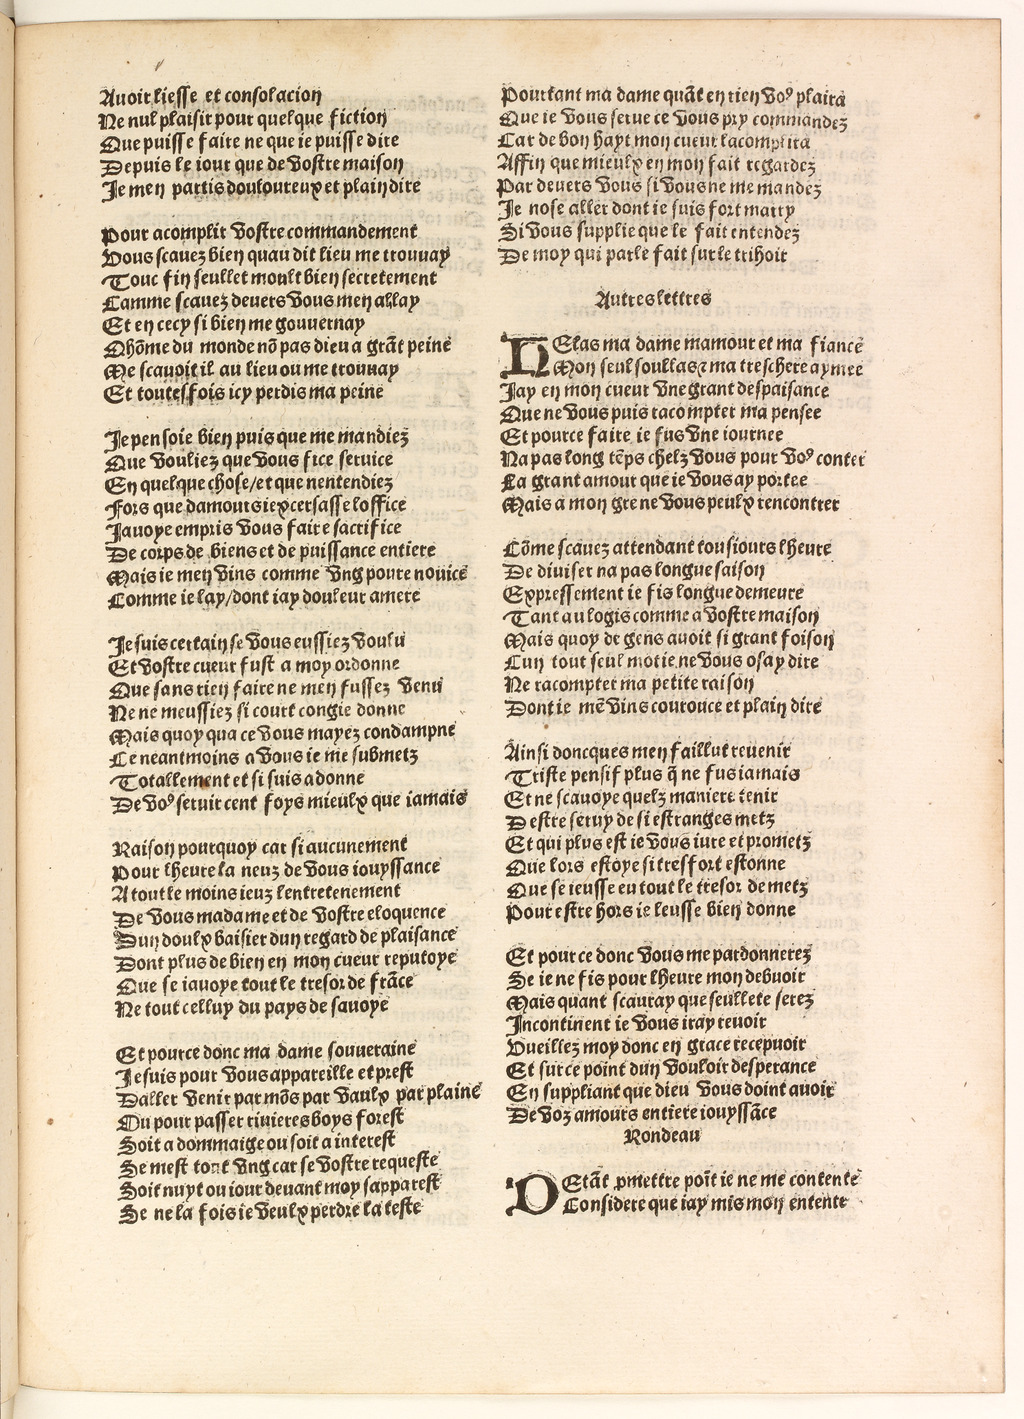 Auoir liesse et consolacion
Ne nul plaisir pour quelque fiction
Que puisse faire ne que ie puisse dire
Depuis le iour que de vostre maison
Je men partis douloureux et plain dire
Pour acomplir vostre commandement
Vous scauez bien quau dit lieu me trouuay
Touc fin seullet moult bien secretement
Camme scauez deuers vous men allay
Et en cecy si bien me gouuernay
Qhõme du monde nõ pas dieu a grãt peine
Me scauoit il au lieu ou me trouuay
Et toutesfois icy perdis ma peine
Je pensoie bien puis que me mandiez
Que vouliez que vous fice seruice
En quelque chose/et que nentendiez
Fors que damours iexcersasse loffice
Jauoye empris vous faire sacrifice
De corps de biens et de puissance entiere
Mais ie men vins comme vng poure nouice
Comme ie lay/dont iay douleur amere
Je suis certain se vous eussiez voulu
Et vostre cueur fust a moy ordonne
Que sans rien faire ne men fussez venu
Ne ne meussiez si court congie donne
Mais quoy qua ce vous mayez condampne
Ce neantmoins a vous ie me submetz
Totallement et si suis adonne
De voꝰ seruir cent foys mieulx que iamais
Raison pourquoy car si aucunement
Pour lheure la neuz de vous iouyssance
A tout le moins ieuz lentretenement
De vous madame et de vostre eloquence
Dun doulx baisier dun regard de plaisance
Dont plus de bien en mon cueur reputoye
Que se iauoye tout le tresor de frãce
Ne tout celluy du pays de sauoye
Et pource donc ma dame souueraine
Je suis pour vous appareille et prest
Daller venir par mõs par vaulx par plaine
Ou pour passer riuieres boys forest
Soit a dommaige ou soit a interest
Se mest tout vng car se vostre requeste
Soit nuyt ou iour deuant moy sapparest
Se ne la fois ie veulx perdre la teste
Pourtant ma dame quãt en rien voꝰ plaira
Que ie vous serue ce vous pry commandez
Car de bon hayt mon cueur lacomplira
Affin que mieulx en mon fait regardez
Par deuers vous si vous ne me mandez
Je nose aller dont ie suis fort marry
Si vous supplie que le fait entendez
De moy qui parle fait sur le trihoir
Autres lettres
HElas ma dame mamour et ma fiance
Mon seul soullas ⁊ ma treschere aymee
Jay en mon cueur vne grant despaisance
Que ne vous puis racompter ma pensee
Et pource faire ie fus vne iournee
Na pas long tẽps chelz vous pour voꝰ conter
La grant amour que ie vous ay portee
Mais a mon gre ne vous peulx rencontrer
Cõme scauez attendant tousiours lheure
De diuiser na pas longue saison
Expressement ie fis longue demeure
Tant au logis comme a vostre maison
Mais quoy de gens auoit si grant foison
Cun tout seul mot ie ne vous osay dire
Ne racompter ma petite raison
Dont ie mẽ vins courouce et plain dire
Ainsi doncques men faillut reuenir
Triste pensif plus q̃ ne fus iamais
Et ne scauoye quelz maniere tenir
Destre seruy de si estranges metz
Et qui plus est ie vous iure et prometz
Que lors estoye si tresfort estonne
Que se ieusse eu tout le tresor de metz
Pour estre hors ie leusse bien donne
Et pource donc vous me pardonnerez
Se ie ne fis pour lheure mon debuoir
Mais quant scauray que seullete serez
Incontinent ie vous iray reuoir
Vueillez moy donc en grace recepuoir
Et sur ce point dun vouloir desperance
En suppliant que dieu vous doint auoir
De voz amours entiere iouyssãce
Rondeau
DEstãt ꝓmettre poĩt ie ne me contente
Considere que iay mis mon entente